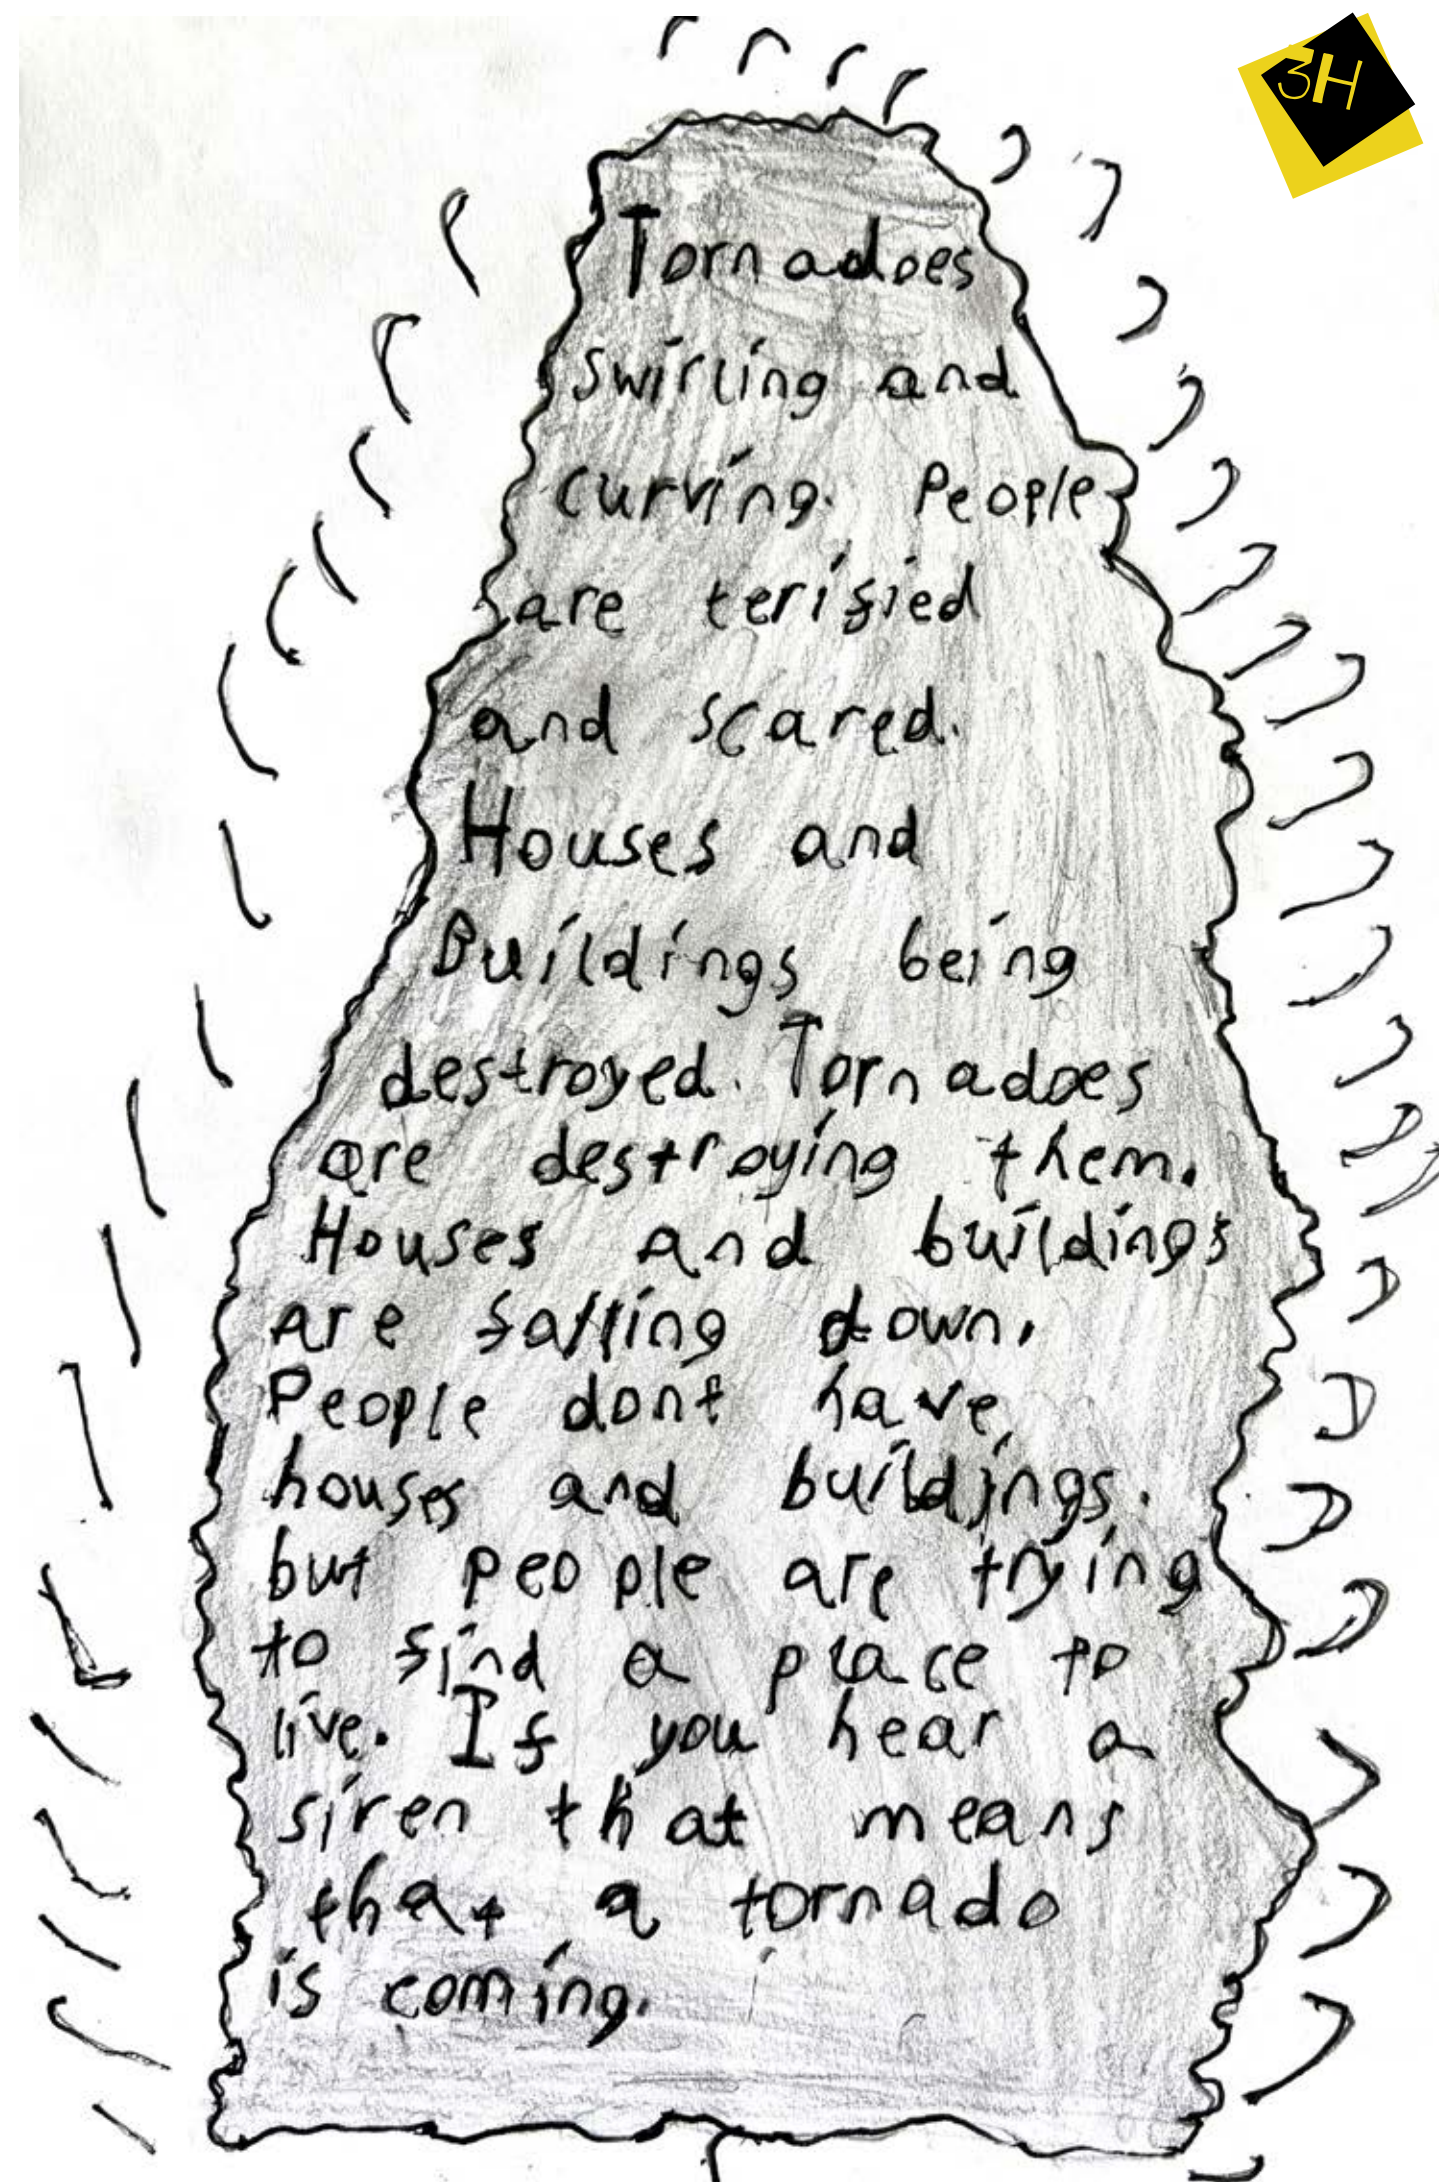 3H
Tornadoes
swirling and
curving. People
are terified
and scared.
Houses and
Buildings being
destroyed. Tornadoes
are destroying them.
Houses and buildings
are falling down.
People dont have
houses and buildings.
but people are trying
to find a place to
live. If you hear a
siren that means
that a tornado
is coming.